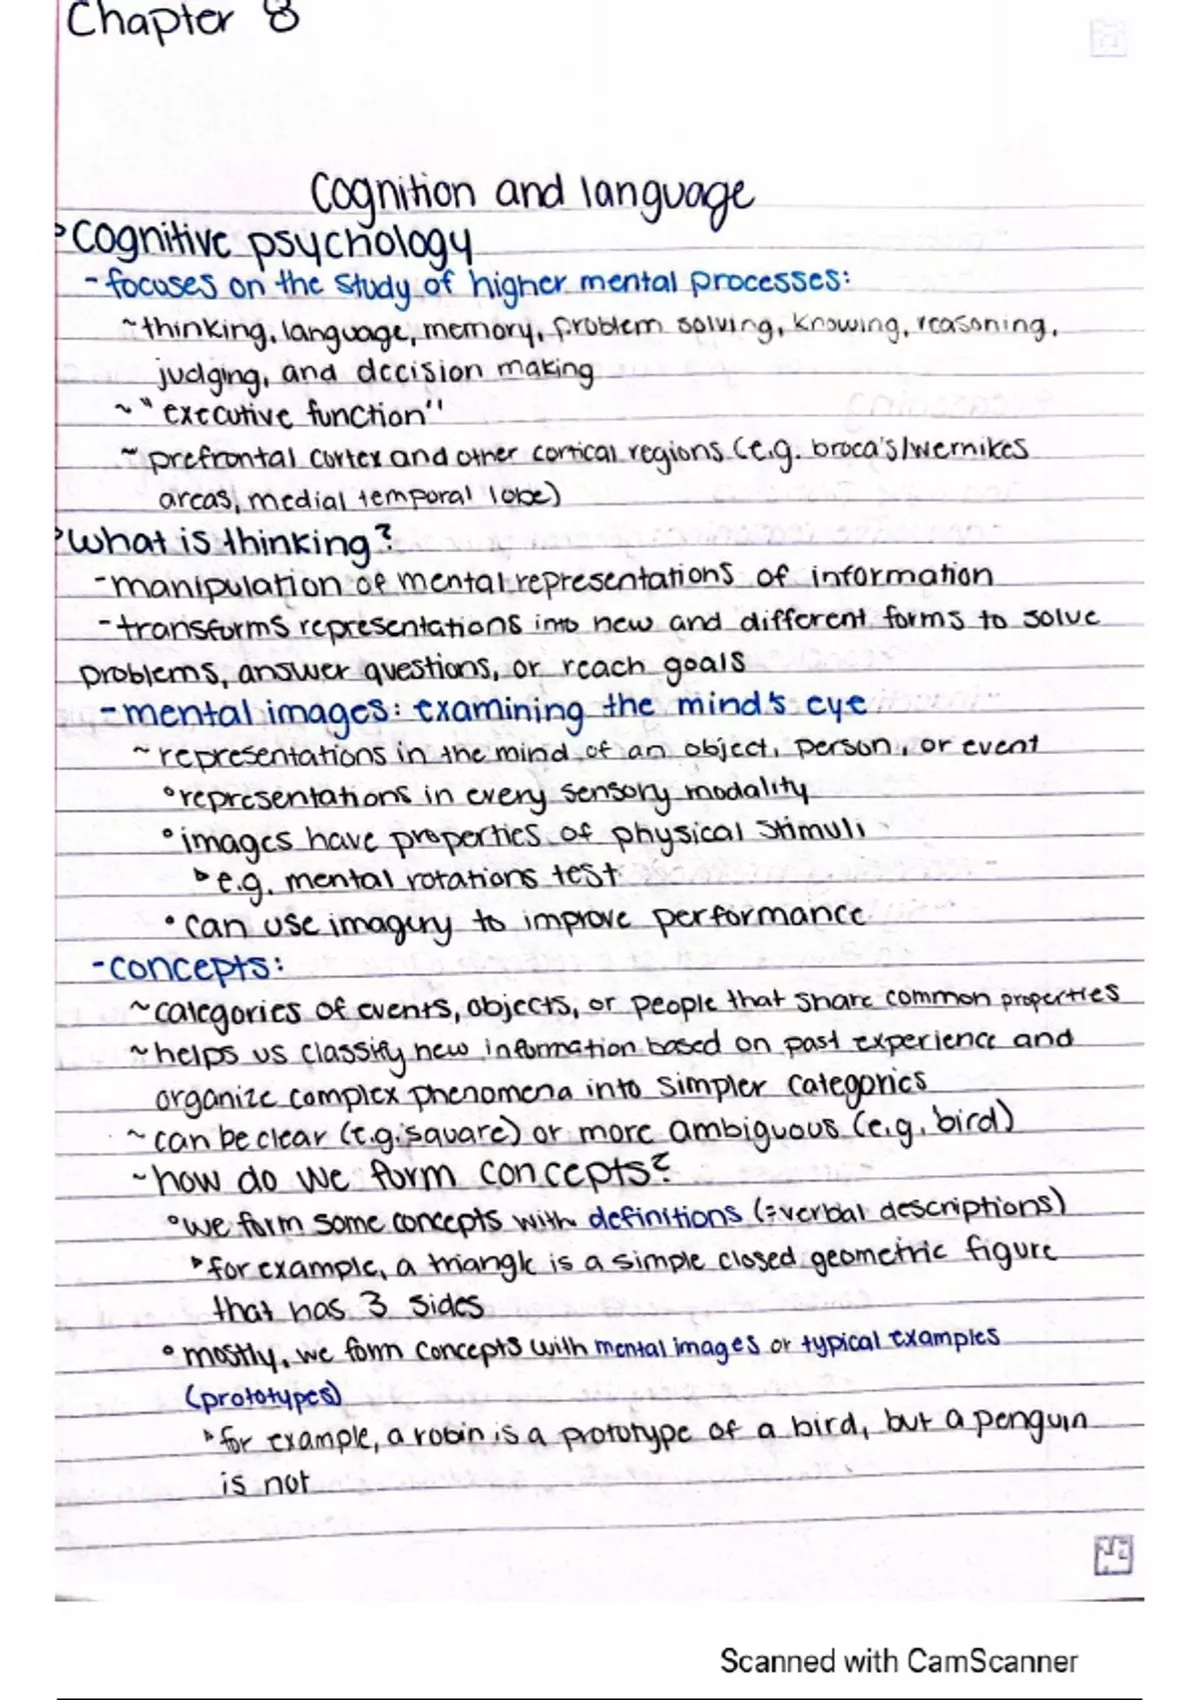 Chapter 8
Cognition and language
Cognitive psychology
- focuses on the study of higher mental processes:
~ thinking, language, memory, problem solving, knowing, reasoning,
judging, and decision making
~ "executive function"
~ prefrontal cortex and other cortical regions (e.g. broca's/wernikes
areas, medial temporal lobe)
What is thinking?
- manipulation of mental representations of information
- transforms representations into new and different forms to solve
problems, answer questions, or reach goals
- mental images: examining the mind's eye
~ representations in the mind of an object, person, or event
° representations in every sensory modality
° images have properties of physical stimuli
▹ e.g. mental rotations test
° can use imagery to improve performance
- concepts:
~ categories of events, objects, or people that share common properties
~ helps us classify new information based on past experience and
organize complex phenomena into simpler categories
~ can be clear (e.g. square) or more ambiguous (e.g. bird)
~ how do we form concepts?
° we form some concepts with definitions (=verbal descriptions)
▹ for example, a triangle is a simple closed geometric figure
that has 3 sides
° mostly, we form concepts with mental images or typical examples
(prototypes)
▹ for example, a robin is a prototype of a bird, but a penguin
is not
Scanned with CamScanner